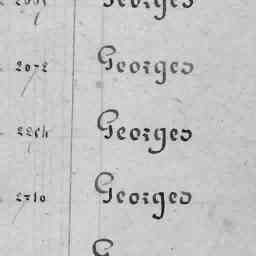 Georges
2072 Georges
Georges
2710 Georges
G